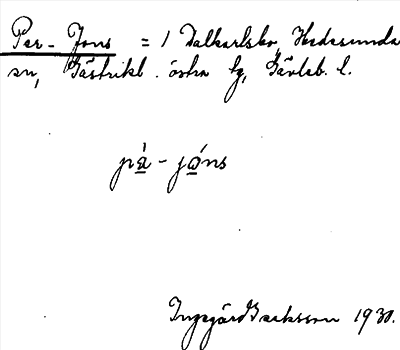 Per-Jons = 1 Dalkarlsbo, Hedesunda
sn, Gästrikl. östra tg, Gävleb. l.
pä̀ - jó̱ns
Ingegärd Isaksson 1930.